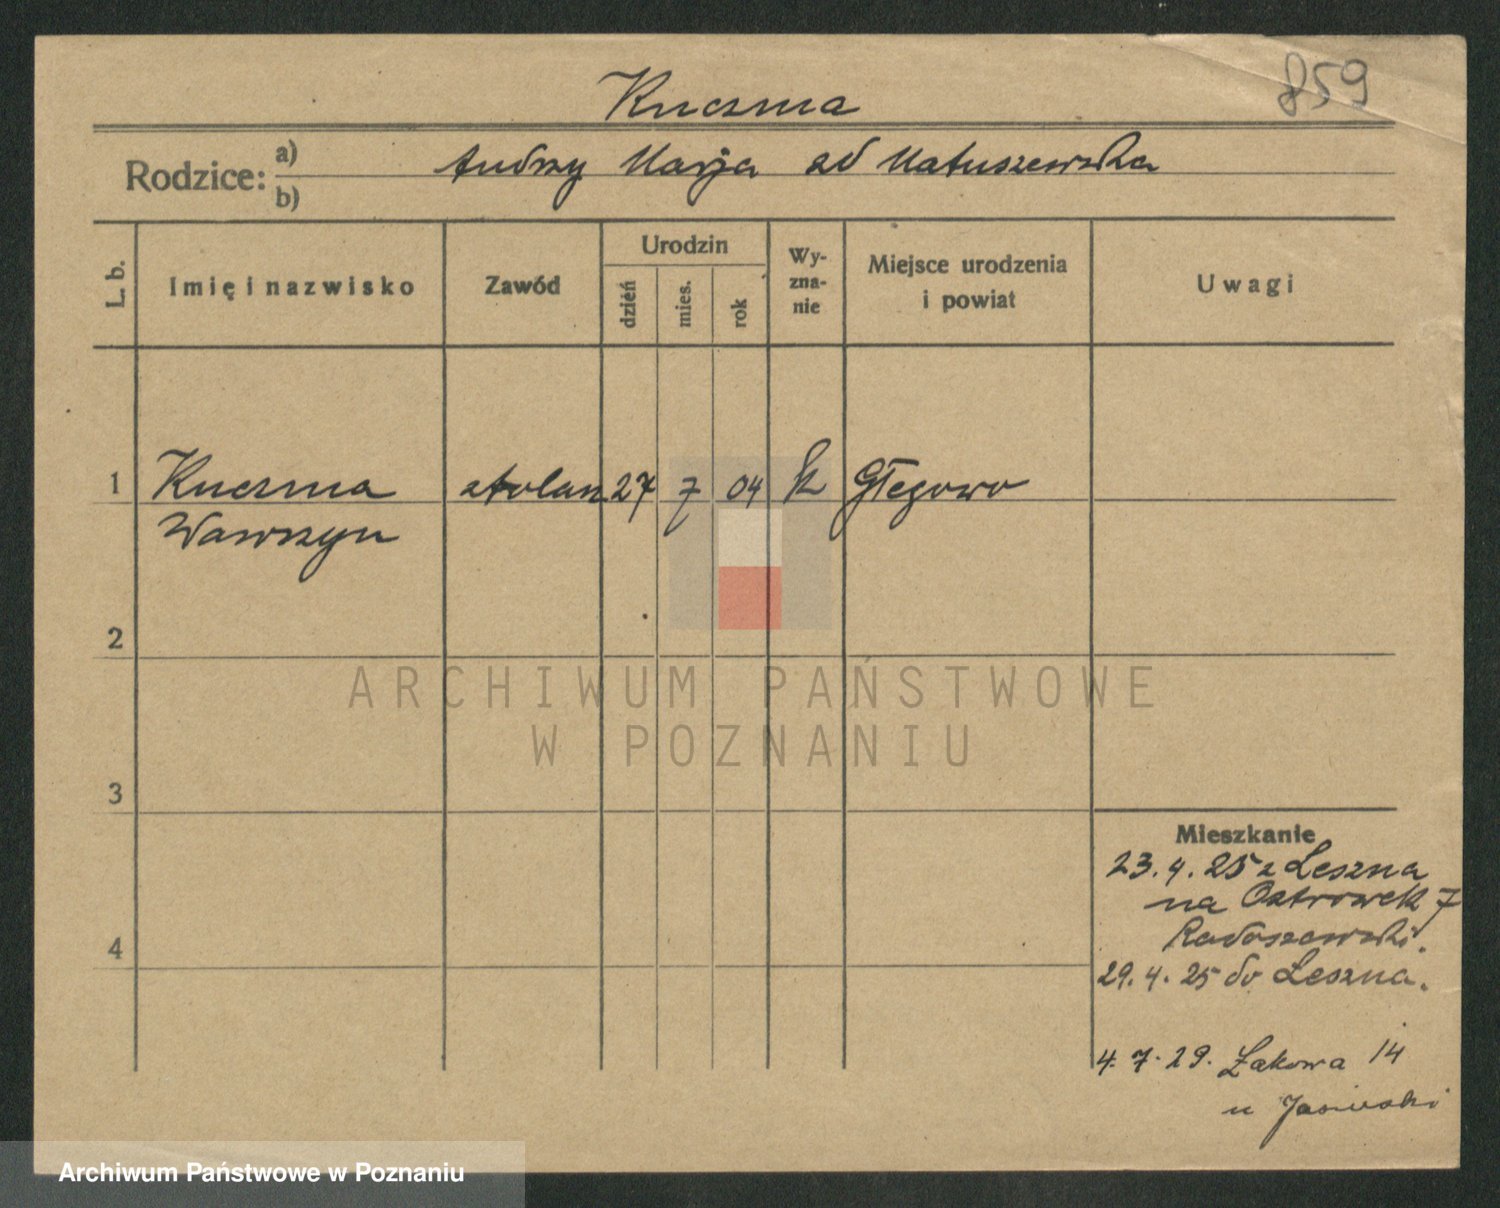 859
Kuczma
Rodzice: a) b) Andrzy Marja zd Matuszewska
L. b.
Imię i nazwisko
Zawód
Urodzin
dzień
mies.
rok
Wy-
zna-
nie
Miejsce urodzenia
i powiat
Uwagi
1 Kuczma stolarz 27 7 04 k Głęgowo
Wawrzyn
2
ARCHIWUM PAŃSTWOWE
W POZNANIU
3
Mieszkanie
23.4.25 z Leszna
na Ostrowek 7
Radoszewski.
4
29.4.25 do Leszna.
4.7.29. Łąkowa 14
u
Archiwum Państwowe w Poznaniu